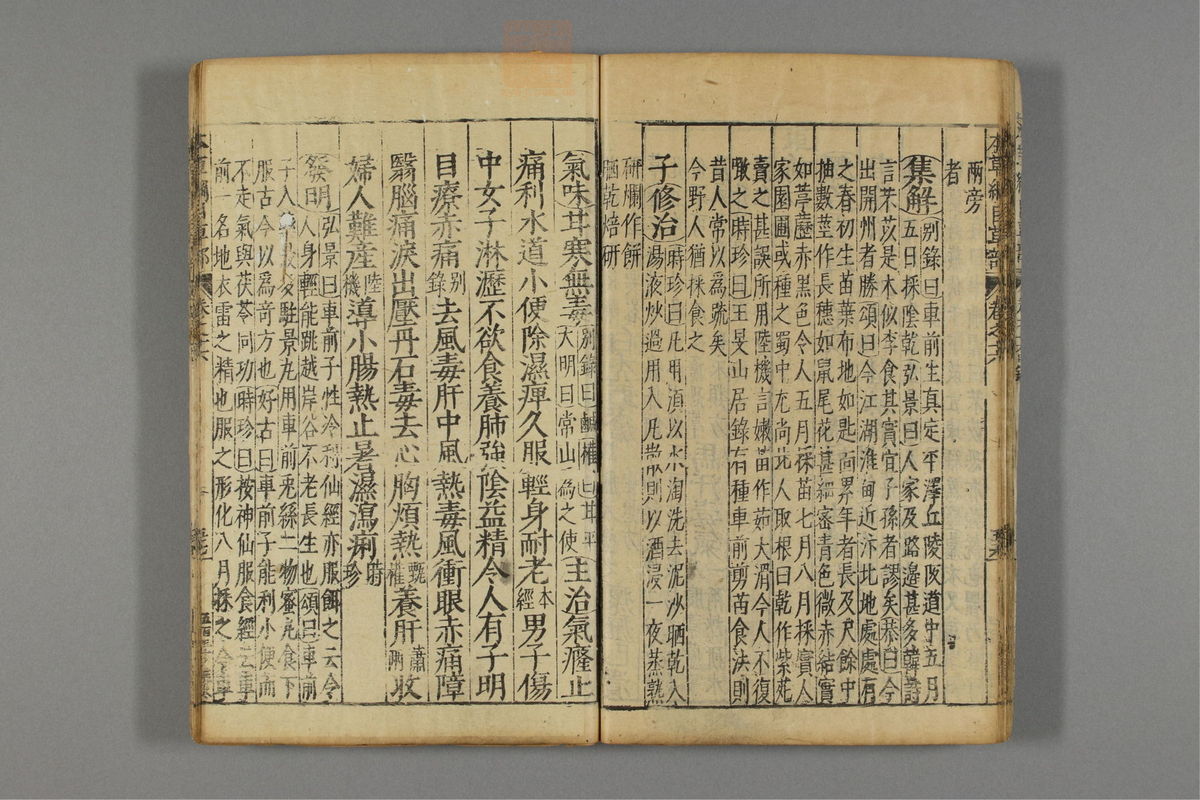 本草綱目草部 卷之十六
兩旁
者
集解 別錄曰車前生真定平澤丘陵阪道中五月
五日採陰乾弘景曰人家及路邊甚多韓詩
言芣苡是木似李食其實宜子孫者謬矣恭曰今
出開州者勝頌曰今江湖淮甸近汴北地處處有
之春初生苗葉布地如匙面累年者長及尺餘中
抽數莖作長穗如鼠尾花甚細密青色微赤結實
如葶藶赤黑色今人五月採苗七月八月採實人
家園圃或種之蜀中尤尚北人取根日乾作紫菀
賣之甚誤所用陸機言嫩苗作茹大滑今人不復
噉之時珍曰王旻山居錄有種車前剪苗食法則
昔人常以爲蔬矣
今野人猶採食之
子 修治 時珍曰凡用須以水淘洗去泥沙晒乾入
湯液炒過用入丸散則以酒浸一夜蒸熟
研爛作餅
晒乾焙研
氣味甘寒無毒 別錄曰鹹權曰甘平大明曰常山爲之使 主治氣癃止
痛利水道小便除濕痺久服輕身耐老本經男子傷
中女子淋瀝不欲食養肺強陰益精令人有子明
目療赤痛別錄去風毒肝中風熱毒風衝眼赤痛障
翳腦痛淚出壓丹石毒去心胸煩熱甄權養肝蕭炳收
婦人難產陸機導小腸熱止暑濕瀉痢時珍
發明 弘景曰車前子性冷利仙經亦服餌之云令
人身輕能跳越岸谷不老長生也頌曰車前
子入多駐景丸用車前兔絲二物蜜丸食下
服古今以爲奇方也好古曰車前子能利小便而
不走氣與茯苓同功時珍曰按神仙服食經云車
前一名地衣雷之精也服之形化八月採之今車
本草綱目草部 卷之十六